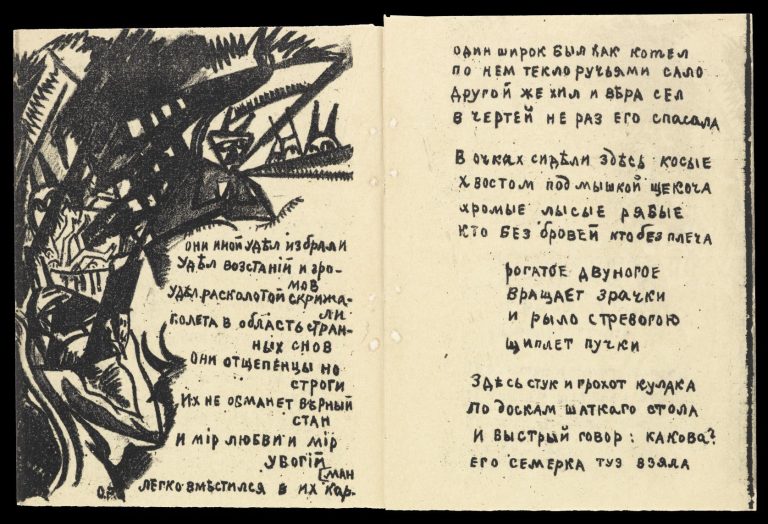 они иной удѣл избрали
Удѣл возстаній и гро-
мов
Удѣл расколотой скрижа-
ли
Полета в область стран-
ных снов
Они отщепенцы но
строги
Их не обманет вѣрный
стан
И мір любви и мір
убогій
[ман
Легко вмѣстился в их кар-
О.Р.
один широк был как котел
по нем текло ручьями сало
другой же хил и вѣра сел
в чертей не раз его спасала
В очках сидѣли здѣсь косые
Хвостом под мышкой щекоча
хромые лысые рябые
кто без бровей кто без плеча
рогатое двуногое
вращает зрачки
и рыло стревогою
щиплет пучки
Здѣсь стук и грохот кулака
по доскам шаткаго стола
и быстрый говор: какова?
его семерка туз взяла